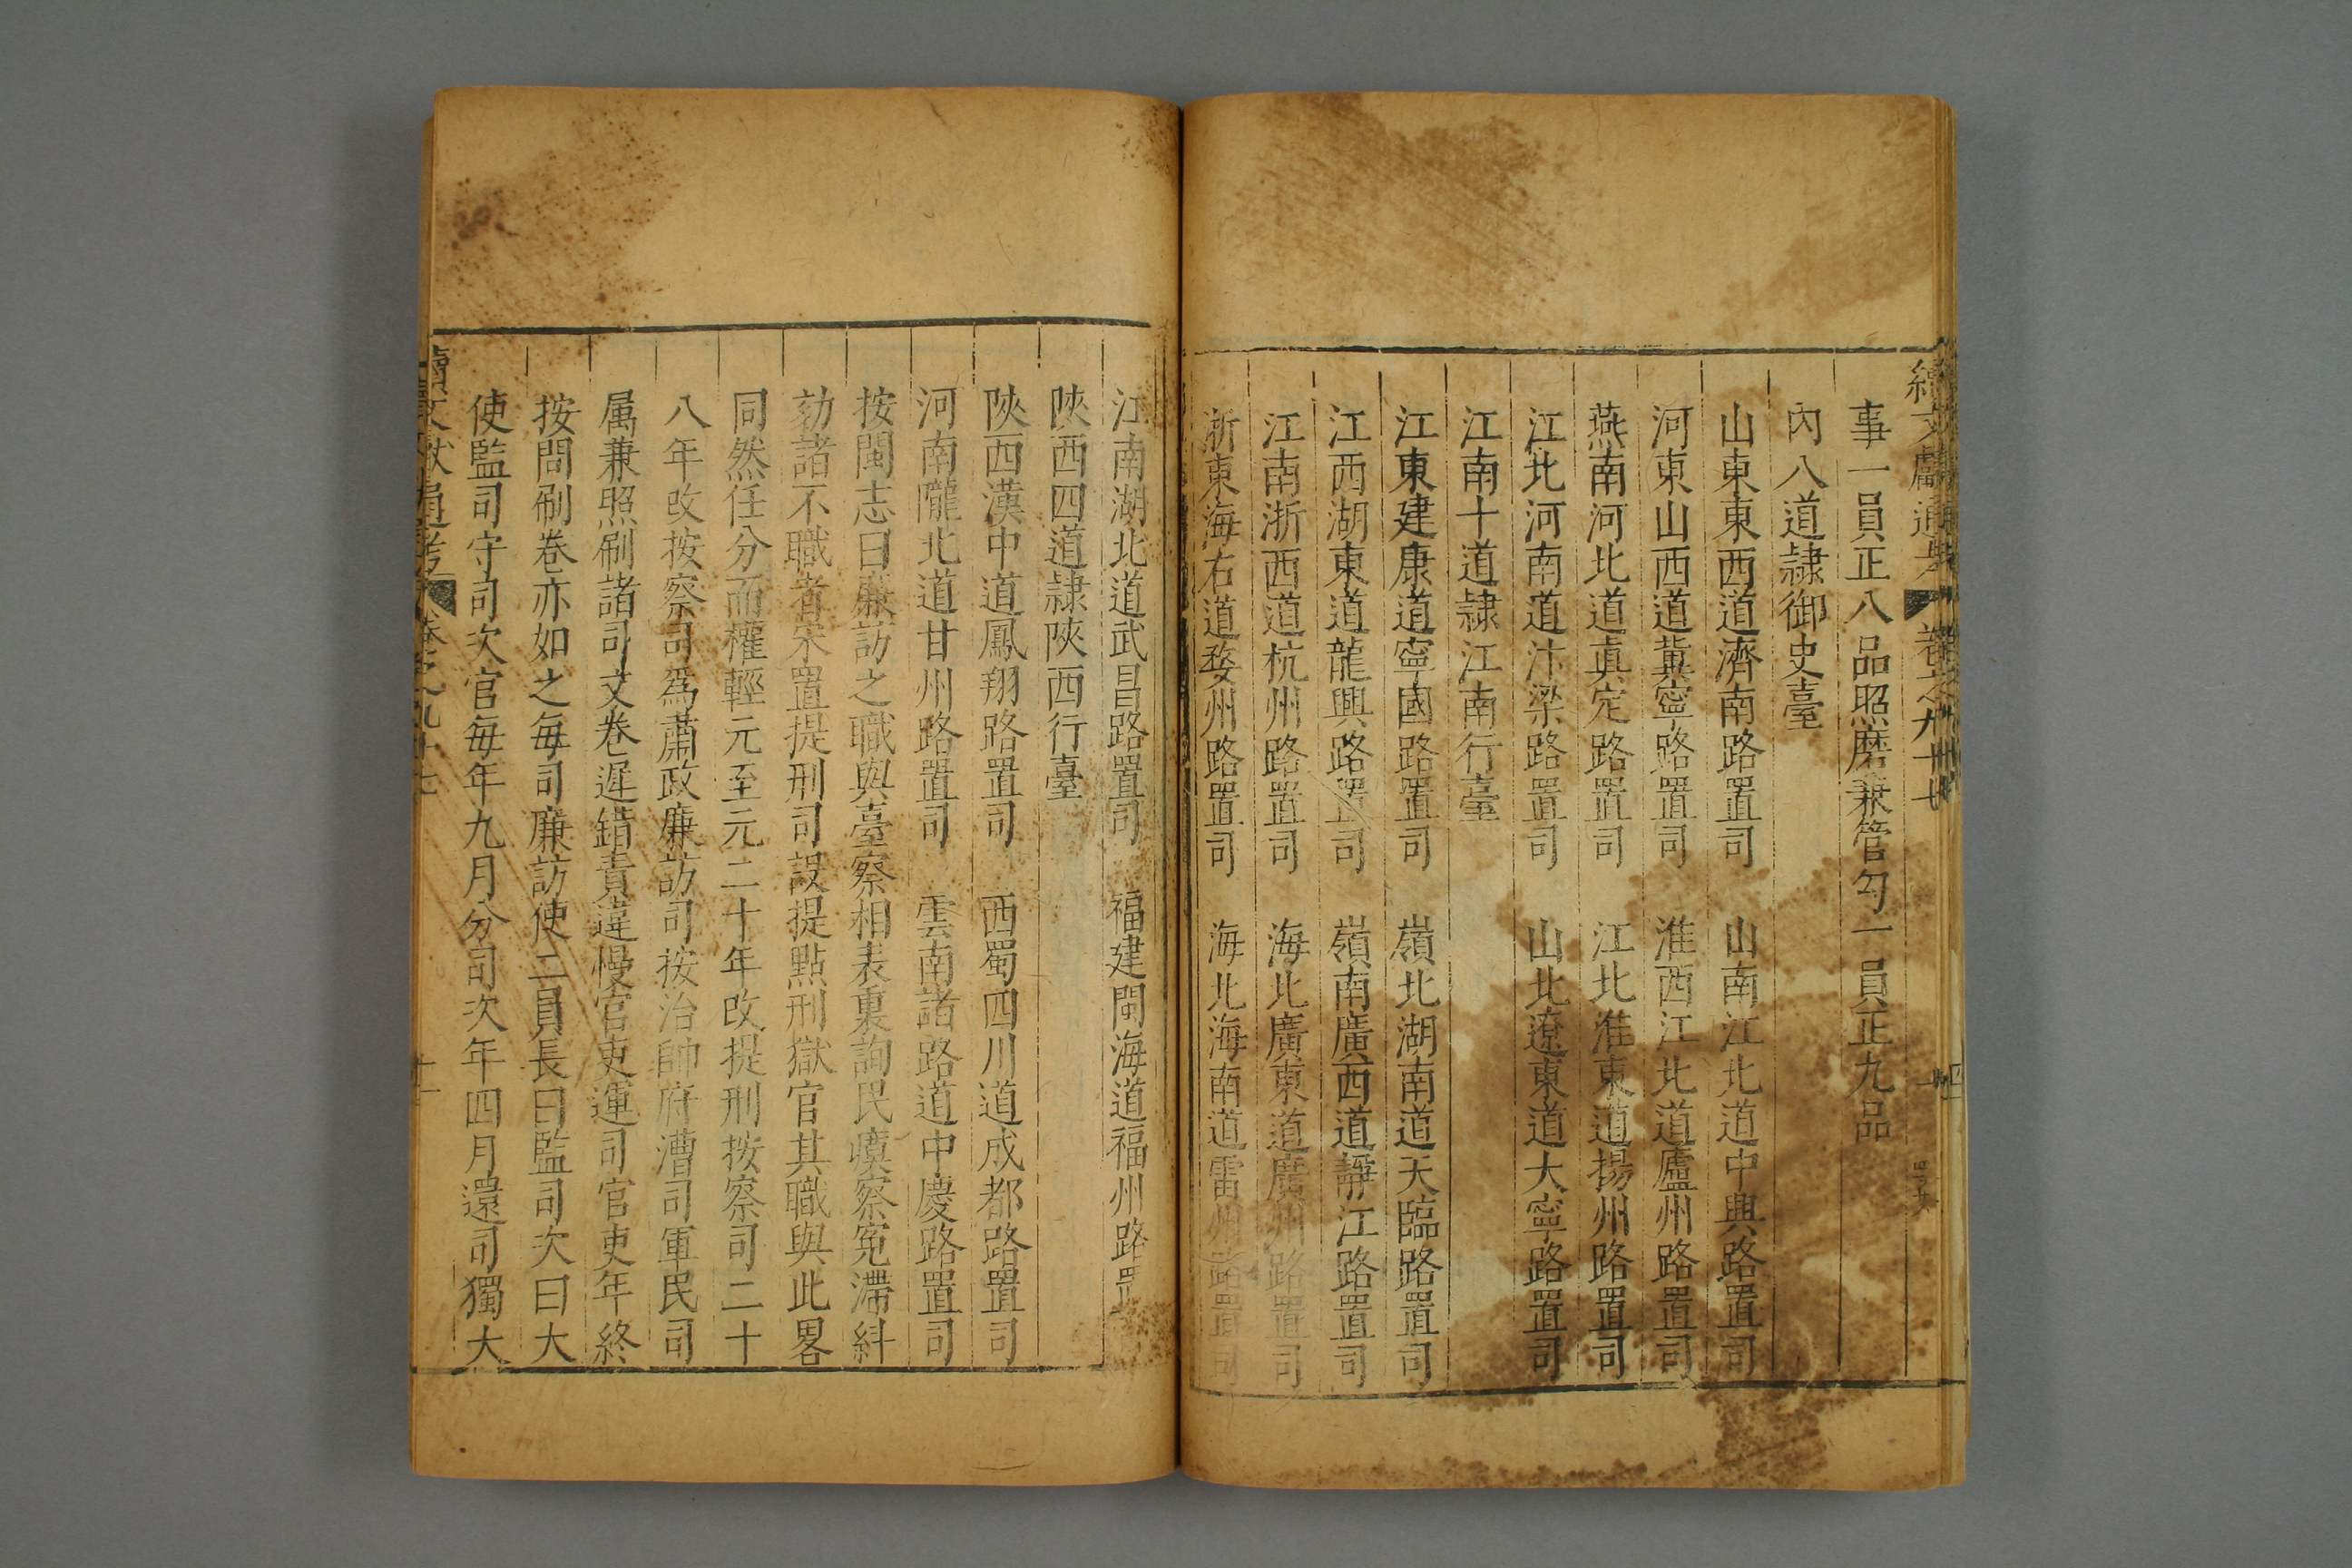 續文獻通考 卷之九十七
事一員正八品照磨兼管勾一員正九品
內八道隸御史臺
山東東西道濟南路置司 山南江北道中興路置司
河東山西道冀寧路置司 淮西江北道廬州路置司
燕南河北道眞定路置司 江北淮東道揚州路置司
江北河南道汴梁路置司 山北遼東道大寧路置司
江南十道隸江南行臺
江東建康道寧國路置司 嶺北湖南道天臨路置司
江西湖東道龍興路置司 嶺南廣西道靜江路置司
江南浙西道杭州路置司 海北廣東道廣州路置司
浙東海右道婺州路置司 海北海南道雷州路置司
江南湖北道武昌路置司 福建閩海道福州路置
陜西四道隸陜西行臺
陜西漢中道鳳翔路置司 西蜀四川道成都路置司
河南隴北道甘州路置司 雲南諸路道中慶路置司
按閩志曰廉訪之職與臺察相表裏詢民瘼察冤滯糾
劾諸不職者宋置提刑司設提點刑獄官其職與此畧
同然任分而權輕元至元二十年改提刑按察司二十
八年改按察司爲肅政廉訪司按治帥府漕司軍民司
属兼照刷諸司文卷遲錯責違慢官吏運司官吏年終
按問刷卷亦如之每司廉訪使二員長曰監司次曰大
使監司守司次官每年九月分司次年四月還司獨大
續文獻通考 卷之九十七 十一